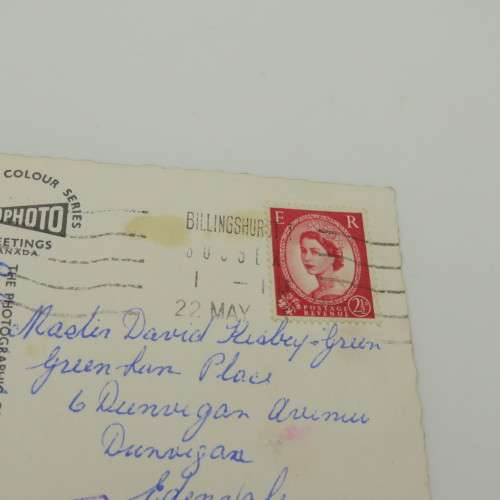 COLOUR SERIES
PHOTO
EETINGS
ANADA
THE PHOTOGRAPHIC
BILLINGSHUR
SUSSE
1 - 1
22 MAY
E R
2½D
POSTAGE
REVENUE
Master David Kesbey-Green
Green-lun Place
6 Dunvegan Avenue
Dunvegan